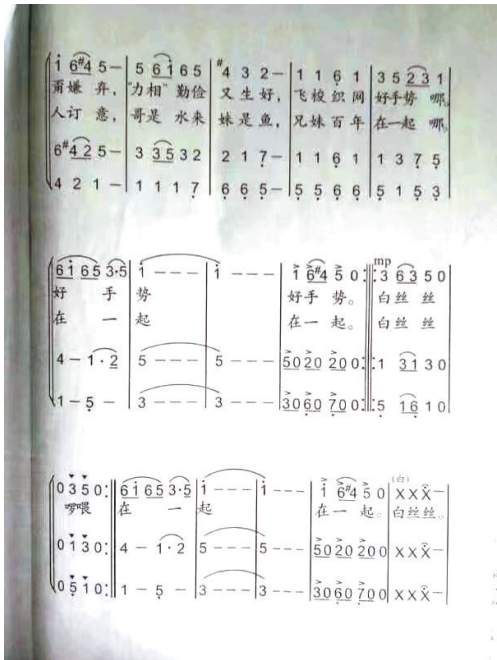 i 6#4 5 — | 5 6i 6 5 | #4 3 2 — | 1 1 6 1 | 3 5 23 1
甭嫌 弃, "力相" 勤俭 又生好, 飞梭织网 好手势 哪。
人订 意, 哥是 水来 妹是鱼, 兄妹百年 在一起 哪。
6#4 25 — | 3 35 3 2 | 2 1 7 — | 1 1 6 1 | 1 3 7 5
4 2 1 — | 1 1 1 7 | 6 6 5 — | 5 5 6 6 | 5 1 5 3
mp
6i 65 3·5 | i — — — | i — — — | i 6#4 5 0 :‖: 3 63 5 0
好 手 势 好手 势。 白丝 丝
在 一 起 在一 起。 白丝 丝
4 — 1·2 | 5 — — — | 5 — — — | 5020 200 :‖: 1 31 3 0
1 — 5 — | 3 — — — | 3 — — — | 3060 700 :‖: 5 16 1 0
(白)
0 3 5 0 :‖ 6i 65 3·5 | i — — — | i — — — | i 6#4 5 0 | X X X —
嗲喂 在 一 起 在一 起。 白丝丝。
0 1 3 0 :‖ 4 — 1·2 | 5 — — — | 5 — — — | 5020 200 | X X X —
0 5 1 0 :‖ 1 — 5 — | 3 — — — | 3 — — — | 3060 700 | X X X —